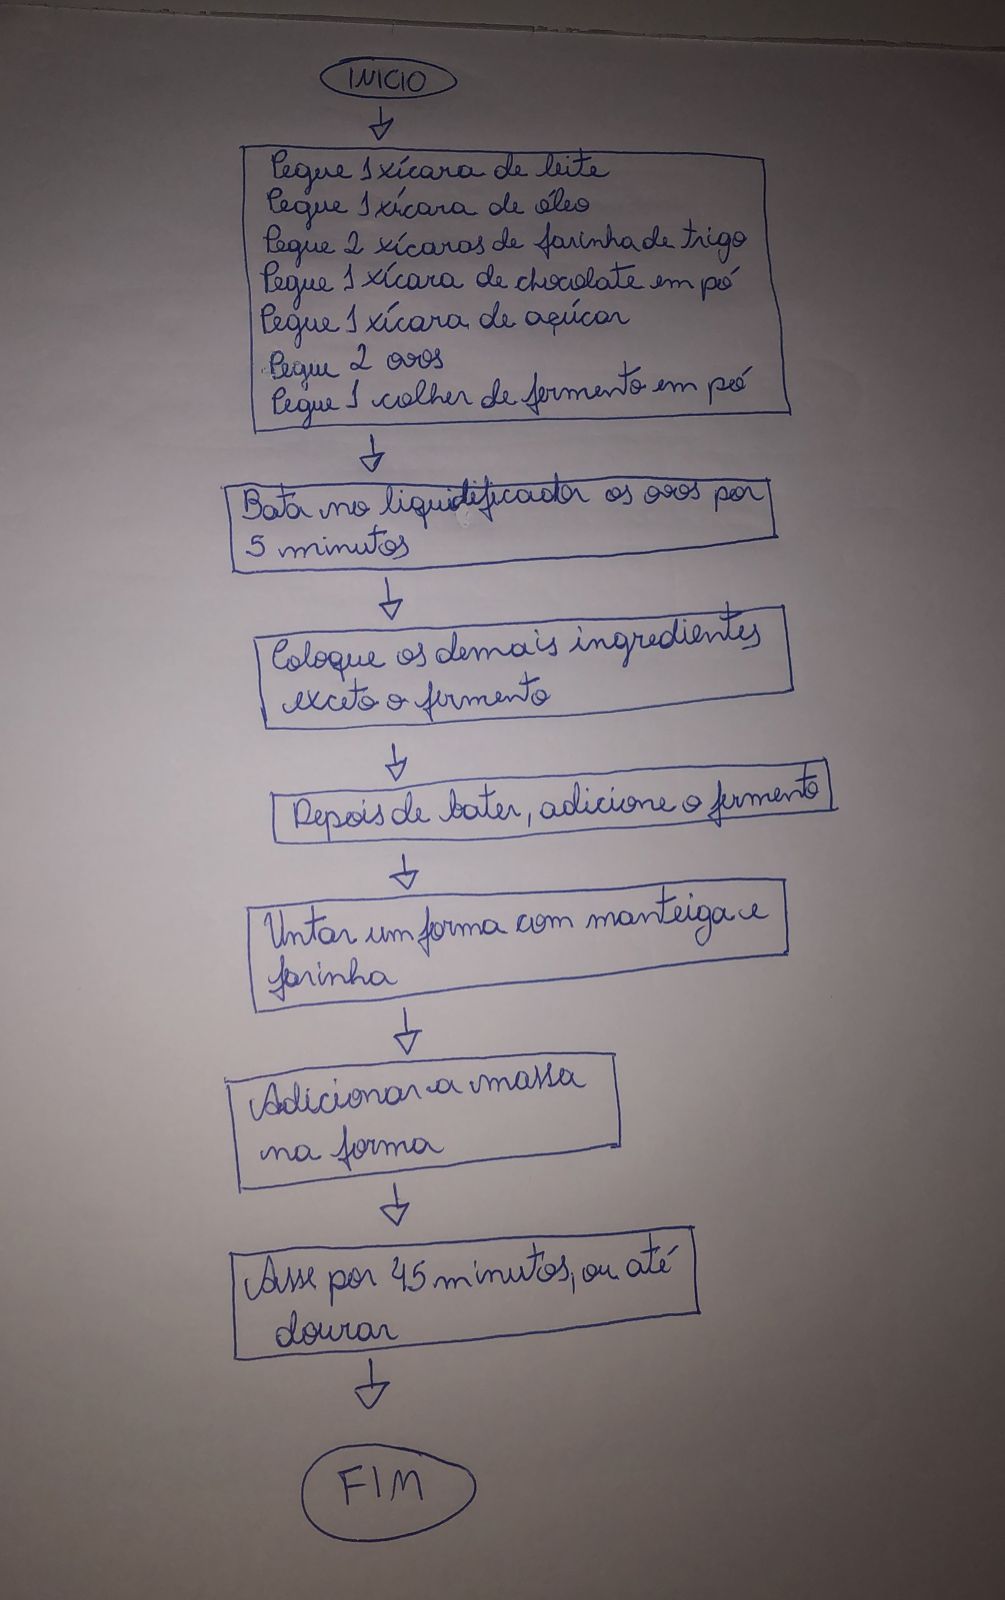 INICIO
Pegue 1 xícara de leite
Pegue 1 xícara de óleo
Pegue 2 xícaras de farinha de trigo
Pegue 1 xícara de chocolate em pó
Pegue 1 xícara de açúcar
Pegue 2 ovos
Pegue 1 colher de fermento em pó
Bata no liquidificador os ovos por
5 minutos
Coloque os demais ingredientes
exceto o fermento
Depois de bater, adicione o fermento
Untar um forma com manteiga e
farinha
Adicionar a massa
na forma
Asse por 45 minutos, ou até
dourar
FIM